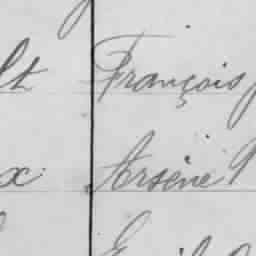 lt François
x Arsène